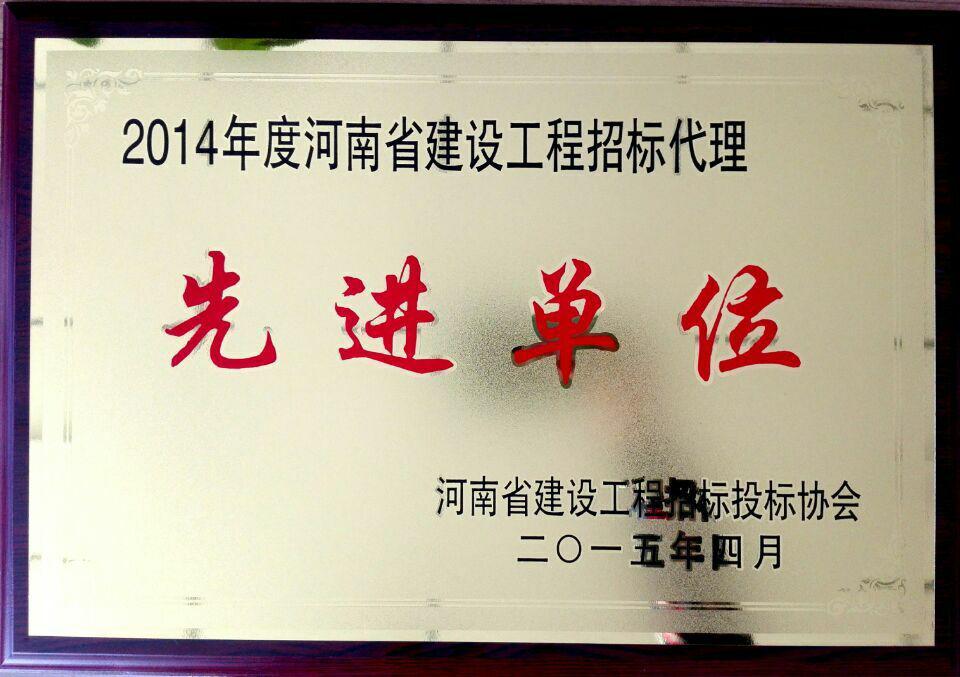 2014年度河南省建设工程招标代理
先进单位
河南省建设工程招标投标协会
二〇一五年四月